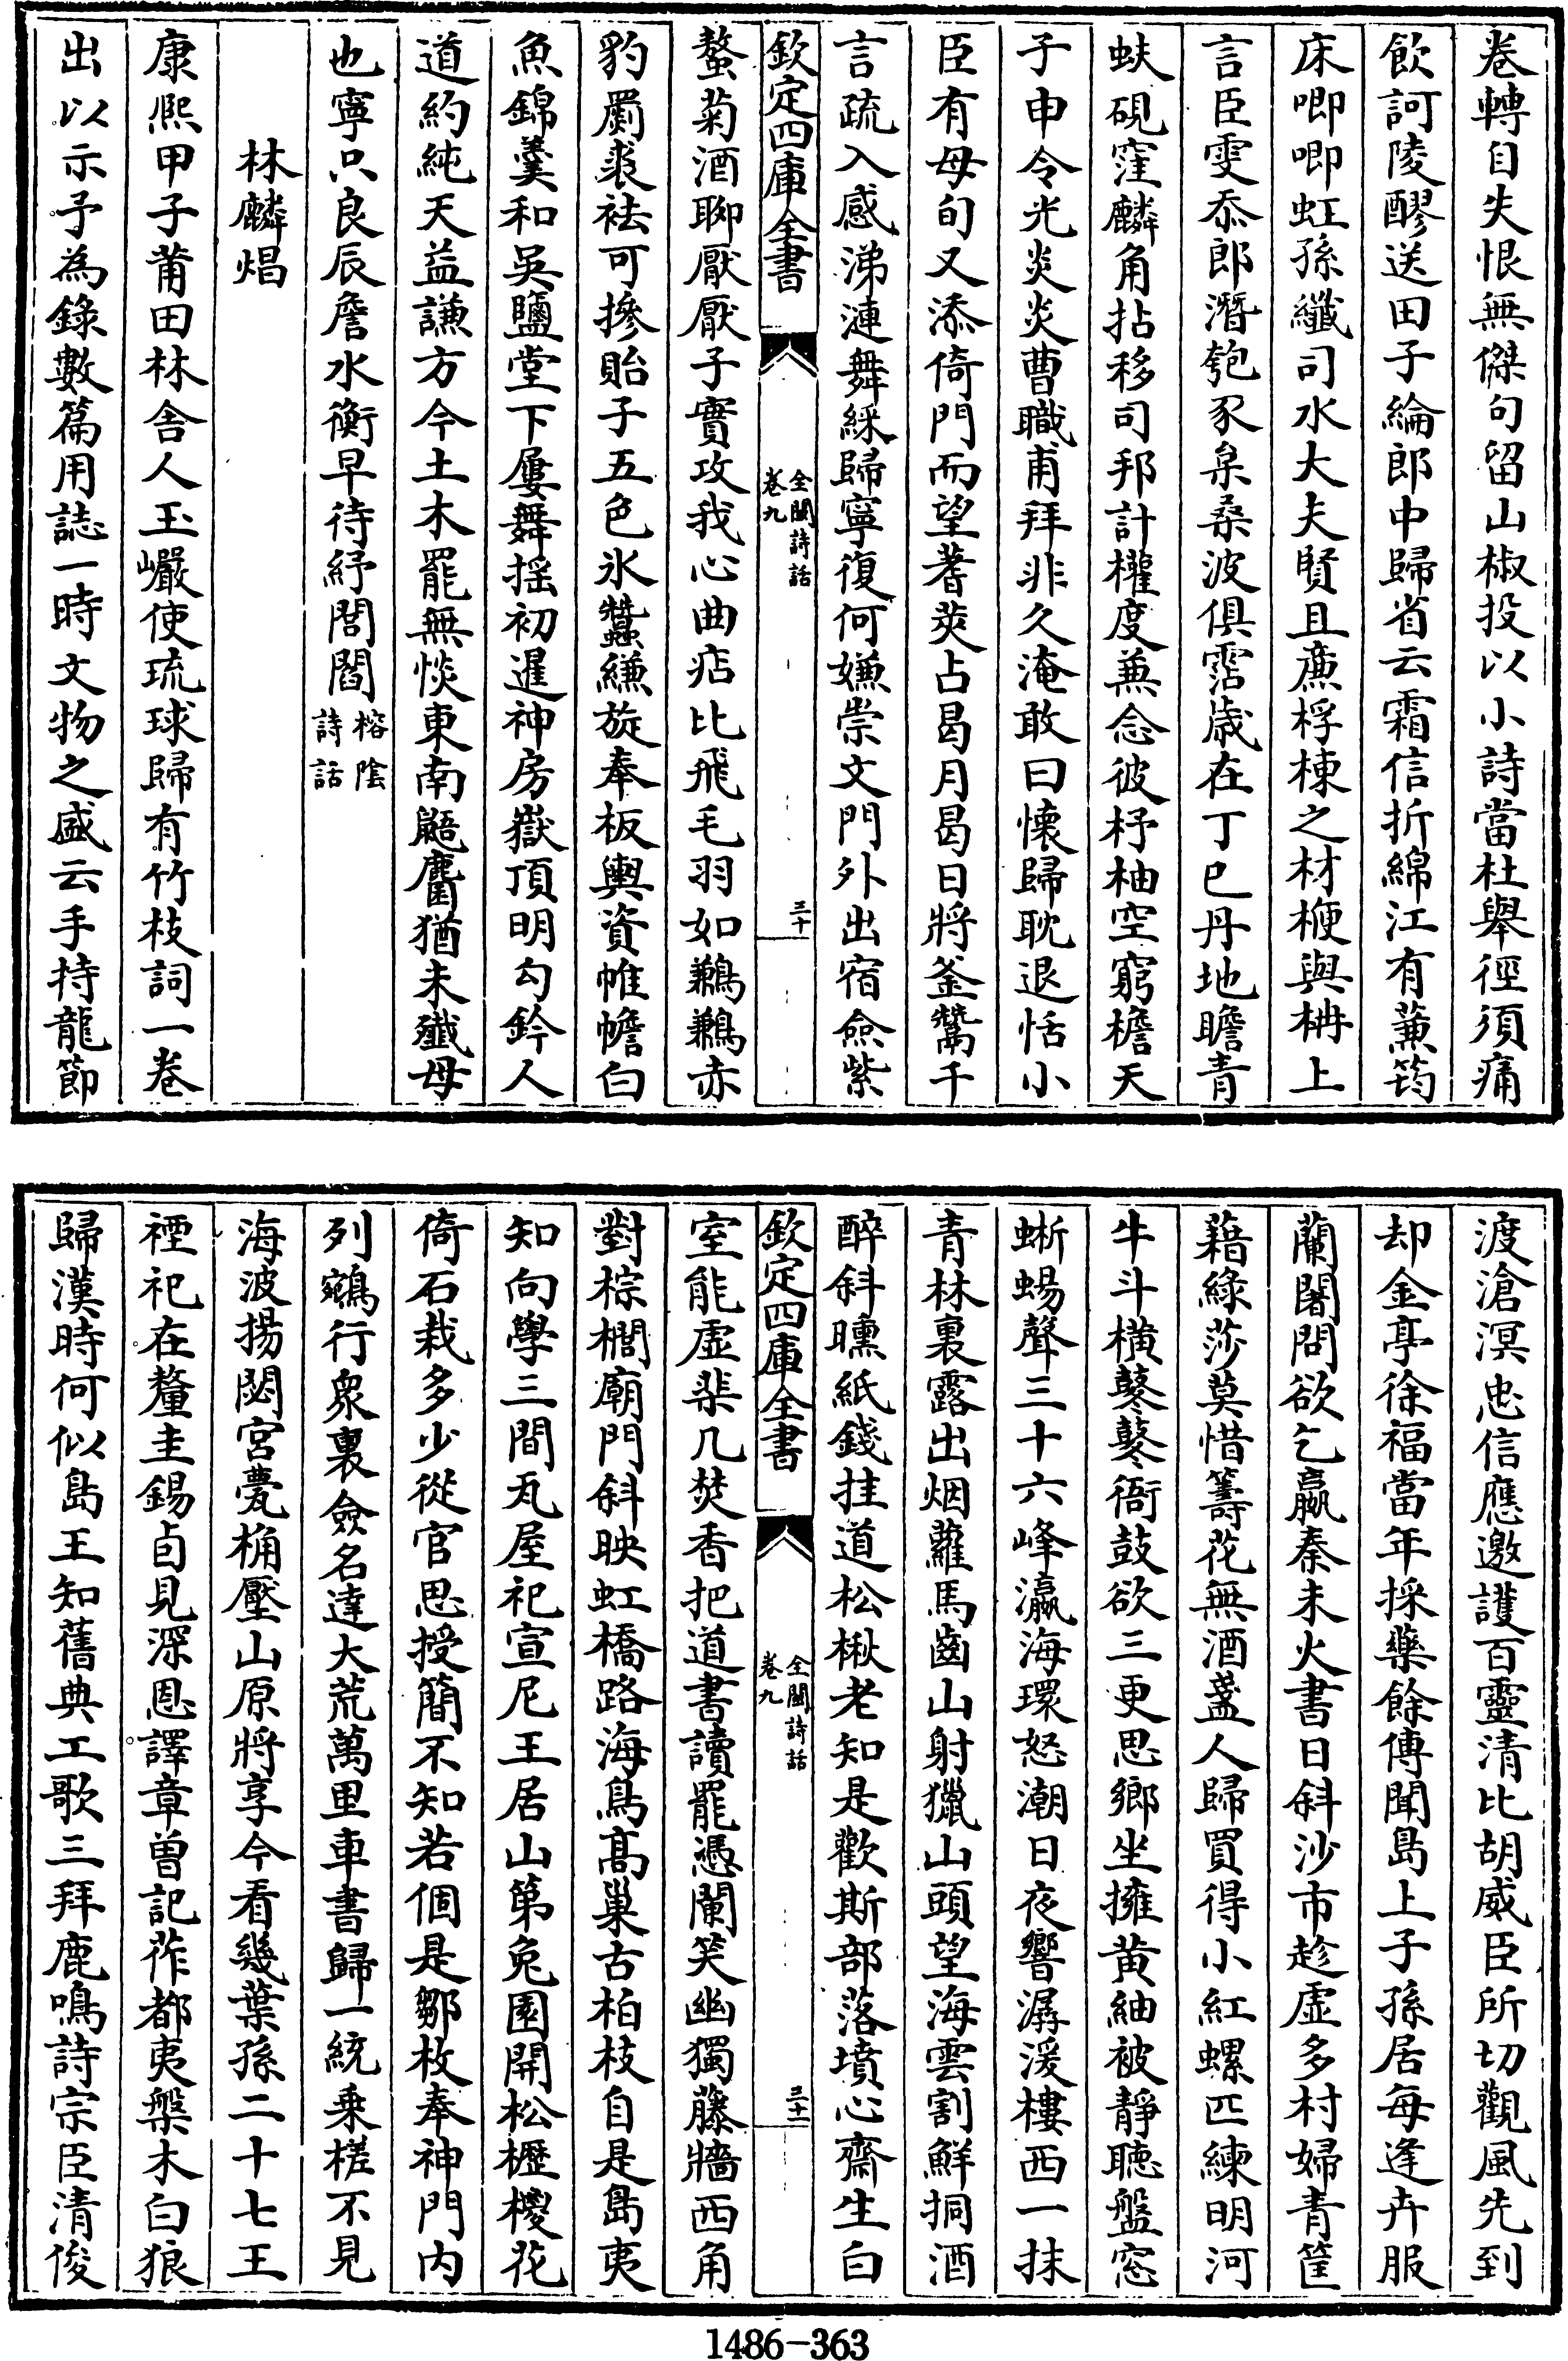 卷轉自失恨無傑句留山椒投以小詩當杜舉徑須痛
飲訶陵醪送田子綸郎中歸省云霜信折綿江有薰筠
床唧唧虹孫纖司水大夫賢且廉桴棟之材楩與柟上
言臣雯忝郎潛匏豕臬桑波俱霑歲在丁巳丹地瞻青
蚨硯窪麟角拈移司邦計權度兼念彼杼柚空窮檐天
子申令光炎炎曹職甫拜非久淹敢曰懷歸耽退恬小
臣有母旬又添倚門而望蓍莢占曷月曷日將釜鬵千
言疏入感涕漣舞綵歸寧復何嫌崇文門外出宿僉紫
欽定四庫全書
全閩詩話
卷九
三十
螯菊酒聊厭厭子實攻我心曲痁比飛毛羽如鶼鶼赤
豹罽裘袪可摻貽子五色氷蠶縑旋奉板輿資帷幨白
魚錦羹和吳鹽堂下屢舞摇初暹神房嶽頂明勾鈐人
道約純天益謙方今土木罷無惔東南鼯麕猶未殲母
也寧只良辰詹水衡早待紓閭閻榕陰
詩話
林麟焻
康熙甲子莆田林舍人玉巖使琉球歸有竹枝詞一卷
出以示予為錄數篇用誌一時文物之盛云手持龍節
渡滄溟忠信應邀護百靈清比胡威臣所切觀風先到
却金亭徐福當年採藥餘傳聞島上子孫居每逢卉服
蘭闍問欲乞嬴秦未火書日斜沙市趁虛多村婦青筐
藉綠莎莫惜籌花無酒盞人歸買得小紅螺匹練明河
牛斗横鼕鼕衙鼓欲三更思鄉坐擁黄紬被靜聽盤窓
蜥蜴聲三十六峰瀛海環怒潮日夜響潺湲樓西一抹
青林裏露出烟蘿馬齒山射獵山頭望海雲割鮮挏酒
醉斜曛紙錢挂道松楸老知是歡斯部落墳心齋生白
欽定四庫全書
全閩詩話
卷九
三十一
室能虛棐几焚香把道書讀罷憑闌笑幽獨藤牆西角
對棕櫚廟門斜映虹橋路海鳥髙巢古柏枝自是島夷
知向學三間瓦屋祀宣尼王居山第兔園開松櫪㮨花
倚石栽多少從官思授簡不知若個是鄒枚奉神門内
列鵷行衆裏僉名達大荒萬里車書歸一統乗槎不見
海波揚閟宮甍桷壓山原將享今看幾葉孫二十七王
禋祀在釐圭錫卣見深恩譯章曽記莋都夷槃木白狼
歸漢時何似島王知舊典工歌三拜鹿鳴詩宗臣清俊
1486-363